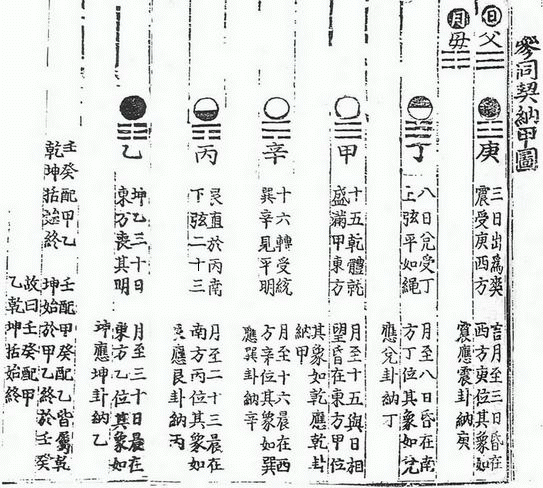 參同契納甲圖
日
父
月
母
庚
三日出為爽
震受庚西方
吉月至三日昏在
西方庚位其象如
震應震卦納庚
丁
八日兌受丁
上弦平如繩
月至八日昏在南
方丁位其象如兌
應兌卦納丁
甲
十五乾體乾
盛滿甲東方
月至十五與日相
望昏在東方甲位
其象如乾應乾卦
納甲
辛
十六轉受統
巽辛見平明
月至十六晨在西
方辛位其象如巽
應巽卦納辛
丙
艮直於丙南
下弦二十三
月至二十三晨在
南方丙位其象如
艮應艮卦納丙
乙
坤乙三十日
東方喪其明
月至三十日晨在
東方乙位其象如
坤應坤卦納乙
壬癸配甲乙
乾坤括始終
壬配甲癸配乙皆屬乾
坤始於甲乙終於壬癸
故曰壬癸配甲
乙乾坤括始終